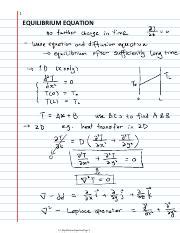 EQUILIBRIUM EQUATION
no further change in time ∂T/∂t = 0
- Wave equation and diffusion equation
→ equilibrium after sufficiently long time
→ 1D (x only):
∂²T/∂x² = 0
T(0) = T₀
T(L) = T₁
T = Ax + B → use BCs to find A & B
→ 2D eg. heat transfer in 2D
∂T/∂t = D ( ∂²T/∂x² + ∂²T/∂y² )
∂²T/∂x² + ∂²T/∂y² = 0
∇²T = 0
∇²- Laplace operator =